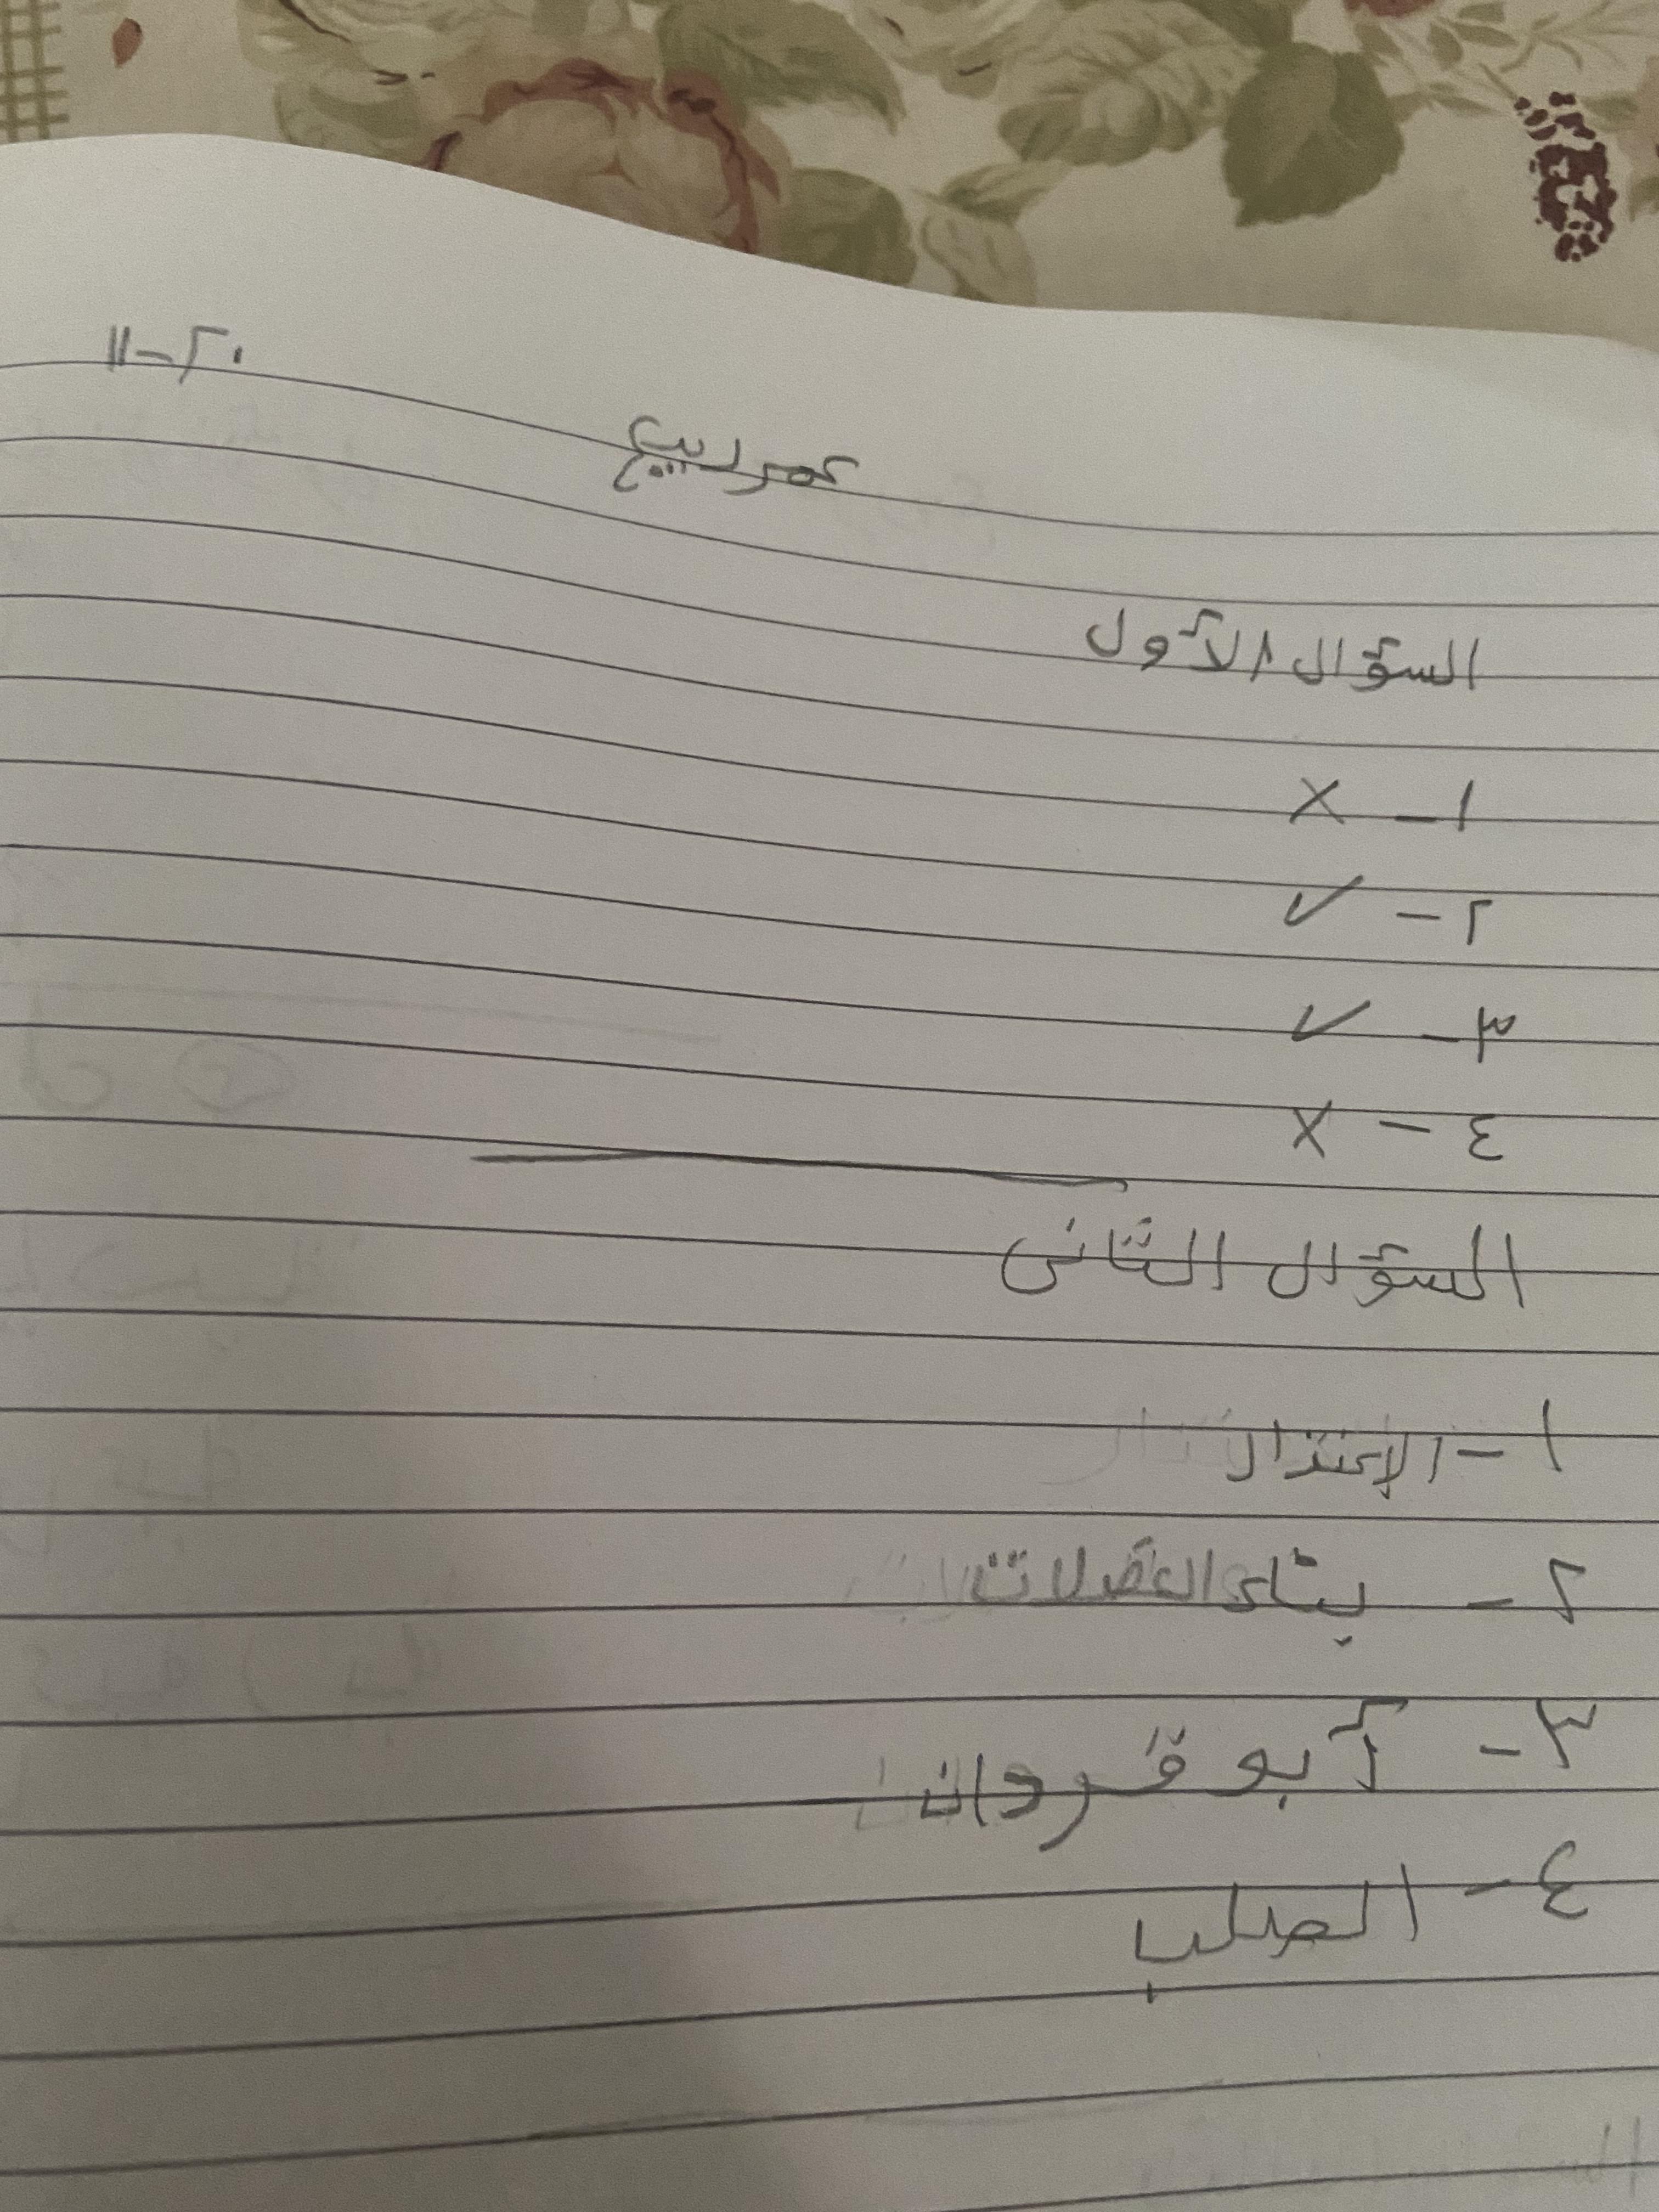 ٢٠-١١
عمر ربيع
السؤال الأول
١- X
٢- ✓
٣- ✓
٤- X
السؤال الثانى
١- الإعتدال
٢- بناء العضلات
٣- أبو قردان
٤- الصلب